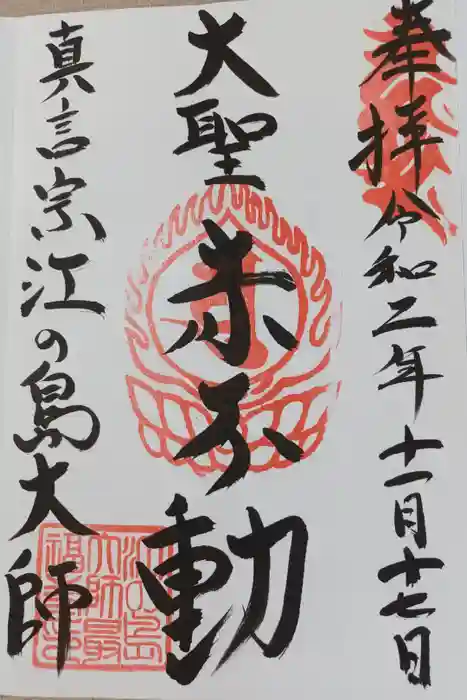 奉拝 令和二年十一月十七日
大聖赤不動
真言宗江の島大師
江の島
大師最
福寺印